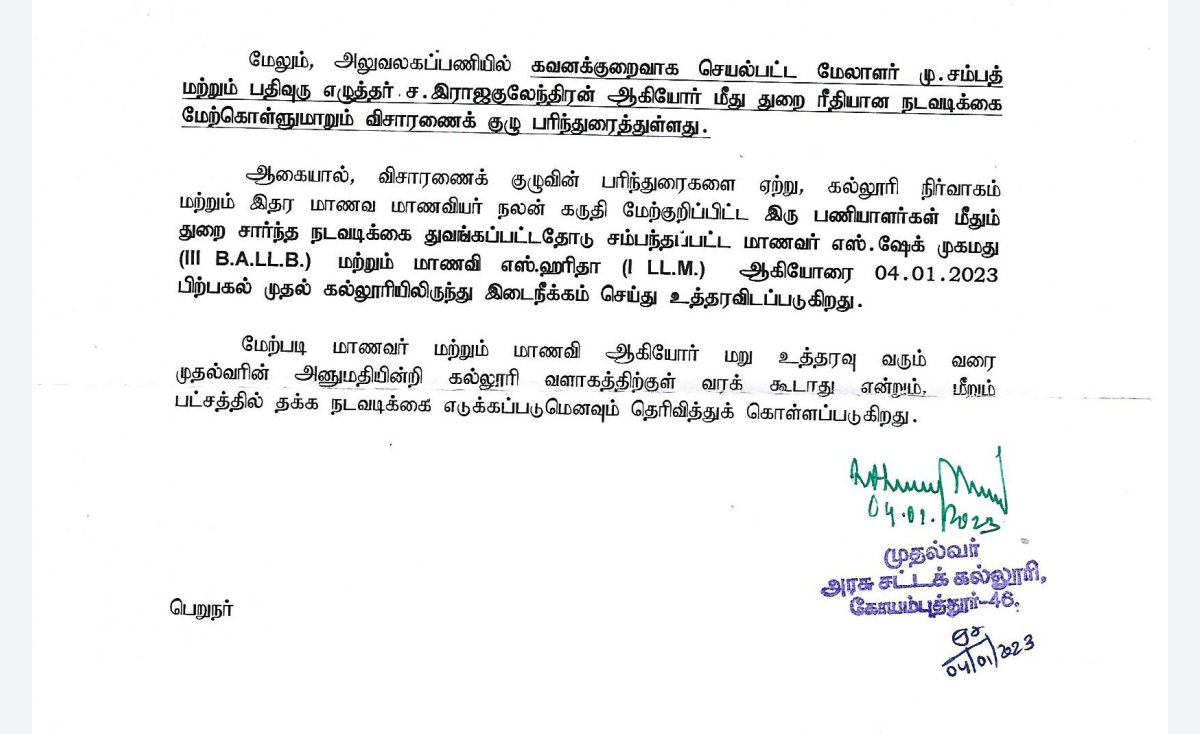 மேலும், அலுவலகப்பணியில் கவனக்குறைவாக செயல்பட்ட மேலாளர் மு.சம்பத்
மற்றும் பதிவுரு எழுத்தர் ச.இராஜகுலேந்திரன் ஆகியோர் மீது துறை ரீதியான நடவடிக்கை
மேற்கொள்ளுமாறும் விசாரணைக் குழு பரிந்துரைத்துள்ளது.
ஆகையால், விசாரணைக் குழுவின் பரிந்துரைகளை ஏற்று, கல்லூரி நிர்வாகம்
மற்றும் இதர மாணவ மாணவியர் நலன் கருதி மேற்குறிப்பிட்ட இரு பணியாளர்கள் மீதும்
துறை சார்ந்த நடவடிக்கை துவங்கப்பட்டதோடு சம்பந்தப்பட்ட மாணவர் எஸ்.ஷேக் முகமது
(III B.A.LL.B.) மற்றும் மாணவி எஸ்.ஹரிதா (I LL.M.) ஆகியோரை 04.01.2023
பிற்பகல் முதல் கல்லூரியிலிருந்து இடைநீக்கம் செய்து உத்தரவிடப்படுகிறது.
மேற்படி மாணவர் மற்றும் மாணவி ஆகியோர் மறு உத்தரவு வரும் வரை
முதல்வரின் அனுமதியின்றி கல்லூரி வளாகத்திற்குள் வரக் கூடாது என்றும், மீறும்
பட்சத்தில் தக்க நடவடிக்கை எடுக்கப்படுமெனவும் தெரிவித்துக் கொள்ளப்படுகிறது.
04.01.2023
முதல்வர்
அரசு சட்டக் கல்லூரி,
கோயம்புத்தூர்-46.
பெறுநர்
04/01/2023